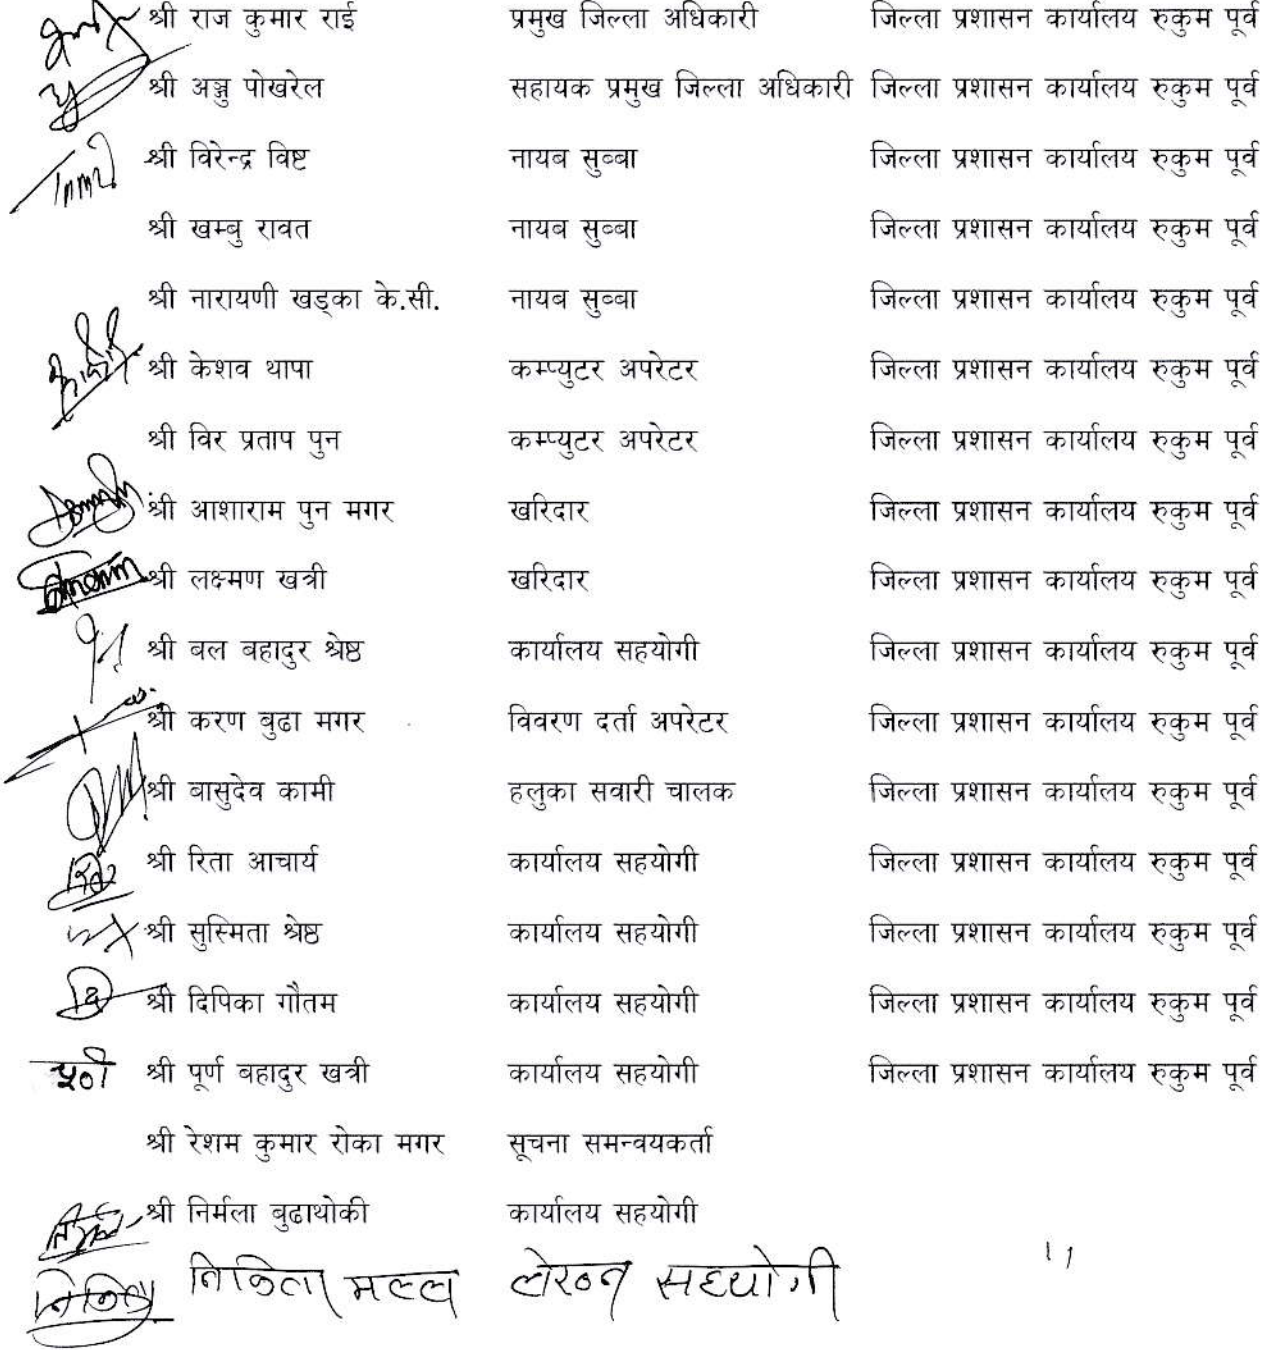 श्री राज कुमार राई प्रमुख जिल्ला अधिकारी जिल्ला प्रशासन कार्यालय रुकुम पूर्व
श्री अञ्जु पोखरेल सहायक प्रमुख जिल्ला अधिकारी जिल्ला प्रशासन कार्यालय रुकुम पूर्व
श्री विरेन्द्र विष्ट नायब सुब्बा जिल्ला प्रशासन कार्यालय रुकुम पूर्व
श्री खम्बु रावत नायब सुब्बा जिल्ला प्रशासन कार्यालय रुकुम पूर्व
श्री नारायणी खड्का के.सी. नायब सुब्बा जिल्ला प्रशासन कार्यालय रुकुम पूर्व
श्री केशव थापा कम्प्युटर अपरेटर जिल्ला प्रशासन कार्यालय रुकुम पूर्व
श्री विर प्रताप पुन कम्प्युटर अपरेटर जिल्ला प्रशासन कार्यालय रुकुम पूर्व
श्री आशाराम पुन मगर खरिदार जिल्ला प्रशासन कार्यालय रुकुम पूर्व
श्री लक्ष्मण खत्री खरिदार जिल्ला प्रशासन कार्यालय रुकुम पूर्व
श्री बल बहादुर श्रेष्ठ कार्यालय सहयोगी जिल्ला प्रशासन कार्यालय रुकुम पूर्व
श्री करण बुढा मगर विवरण दर्ता अपरेटर जिल्ला प्रशासन कार्यालय रुकुम पूर्व
श्री बासुदेव कामी हलुका सवारी चालक जिल्ला प्रशासन कार्यालय रुकुम पूर्व
श्री रिता आचार्य कार्यालय सहयोगी जिल्ला प्रशासन कार्यालय रुकुम पूर्व
श्री सुस्मिता श्रेष्ठ कार्यालय सहयोगी जिल्ला प्रशासन कार्यालय रुकुम पूर्व
श्री दिपिका गौतम कार्यालय सहयोगी जिल्ला प्रशासन कार्यालय रुकुम पूर्व
श्री पूर्ण बहादुर खत्री कार्यालय सहयोगी जिल्ला प्रशासन कार्यालय रुकुम पूर्व
श्री रेशम कुमार रोका मगर सूचना समन्वयकर्ता
श्री निर्मला बुढाथोकी कार्यालय सहयोगी
मल्ल लेखन सहयोगी 11